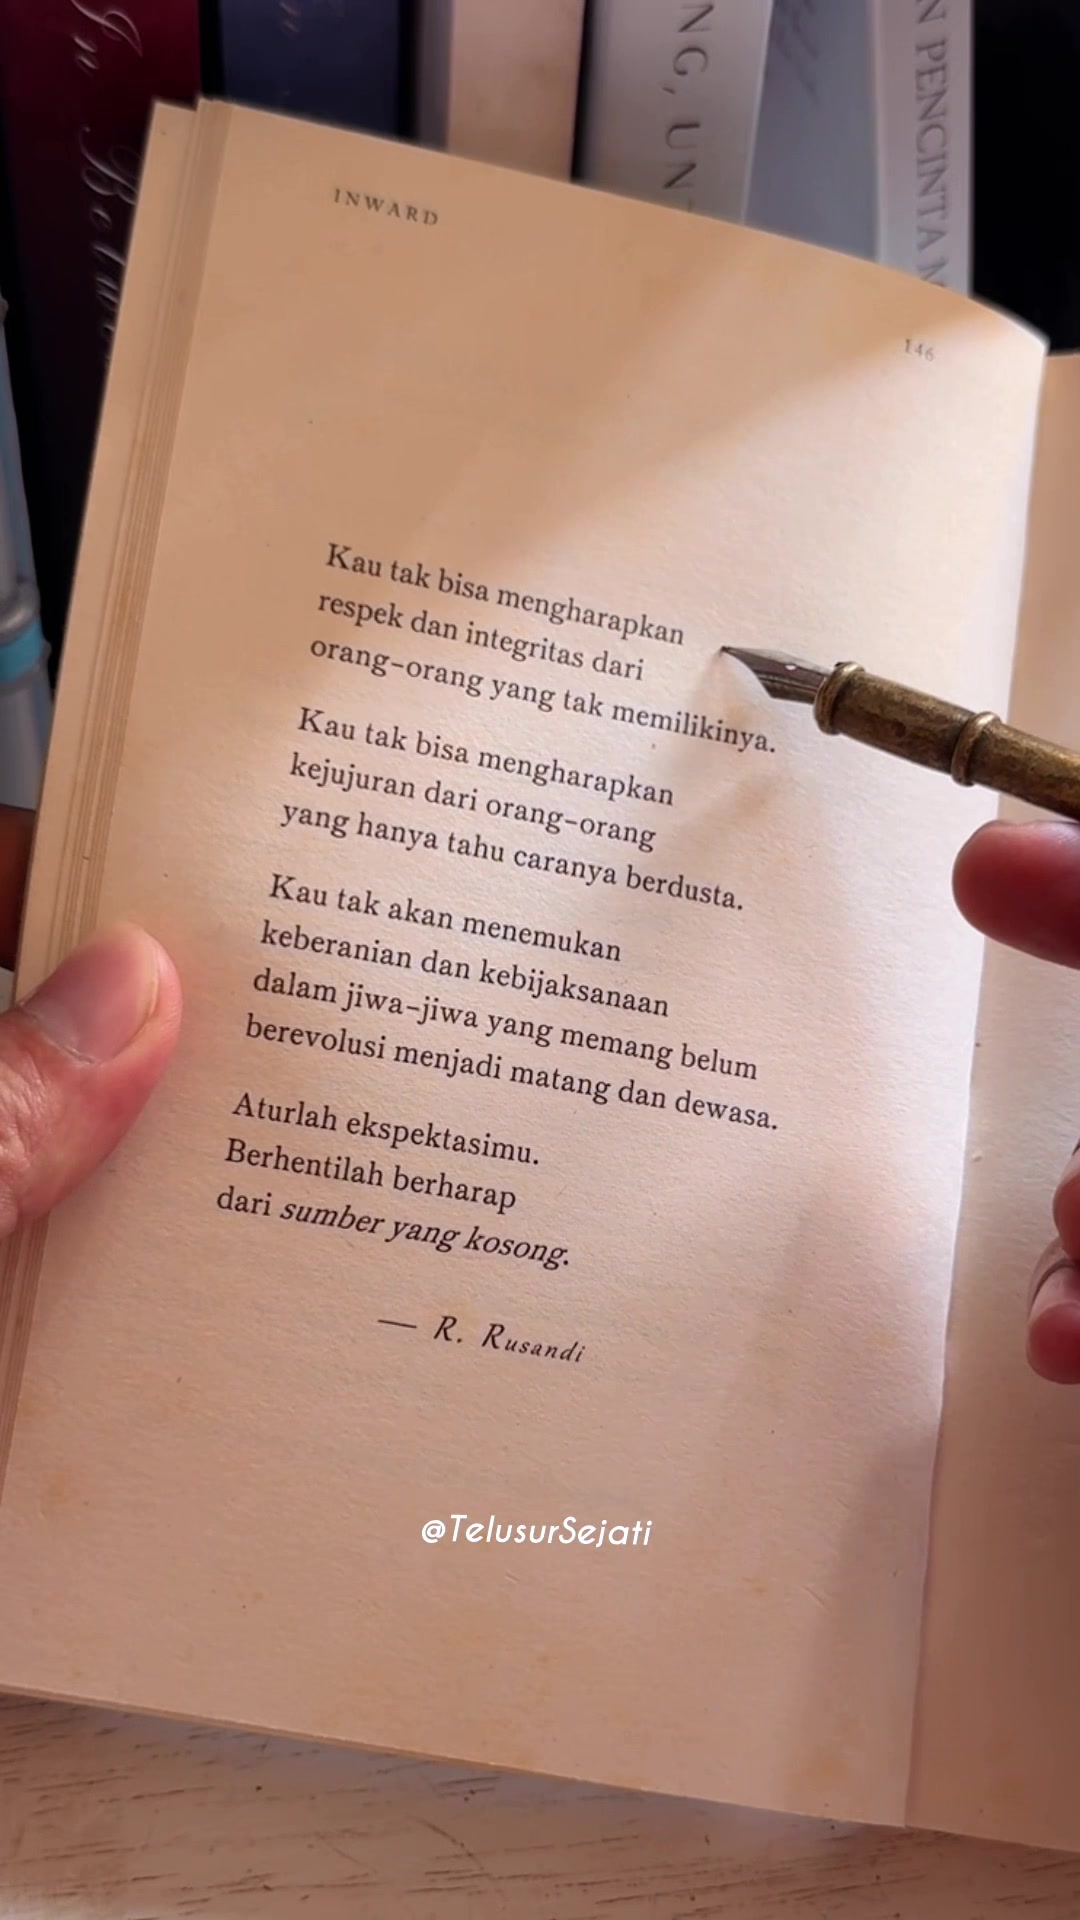 In Betw
NG, UN
N PENCINTA
INWARD
146
Kau tak bisa mengharapkan
respek dan integritas dari
orang-orang yang tak memilikinya.
Kau tak bisa mengharapkan
kejujuran dari orang-orang
yang hanya tahu caranya berdusta.
Kau tak akan menemukan
keberanian dan kebijaksanaan
dalam jiwa-jiwa yang memang belum
berevolusi menjadi matang dan dewasa.
Aturlah ekspektasimu.
Berhentilah berharap
dari sumber yang kosong.
— R. Rusandi
@TelusurSejati